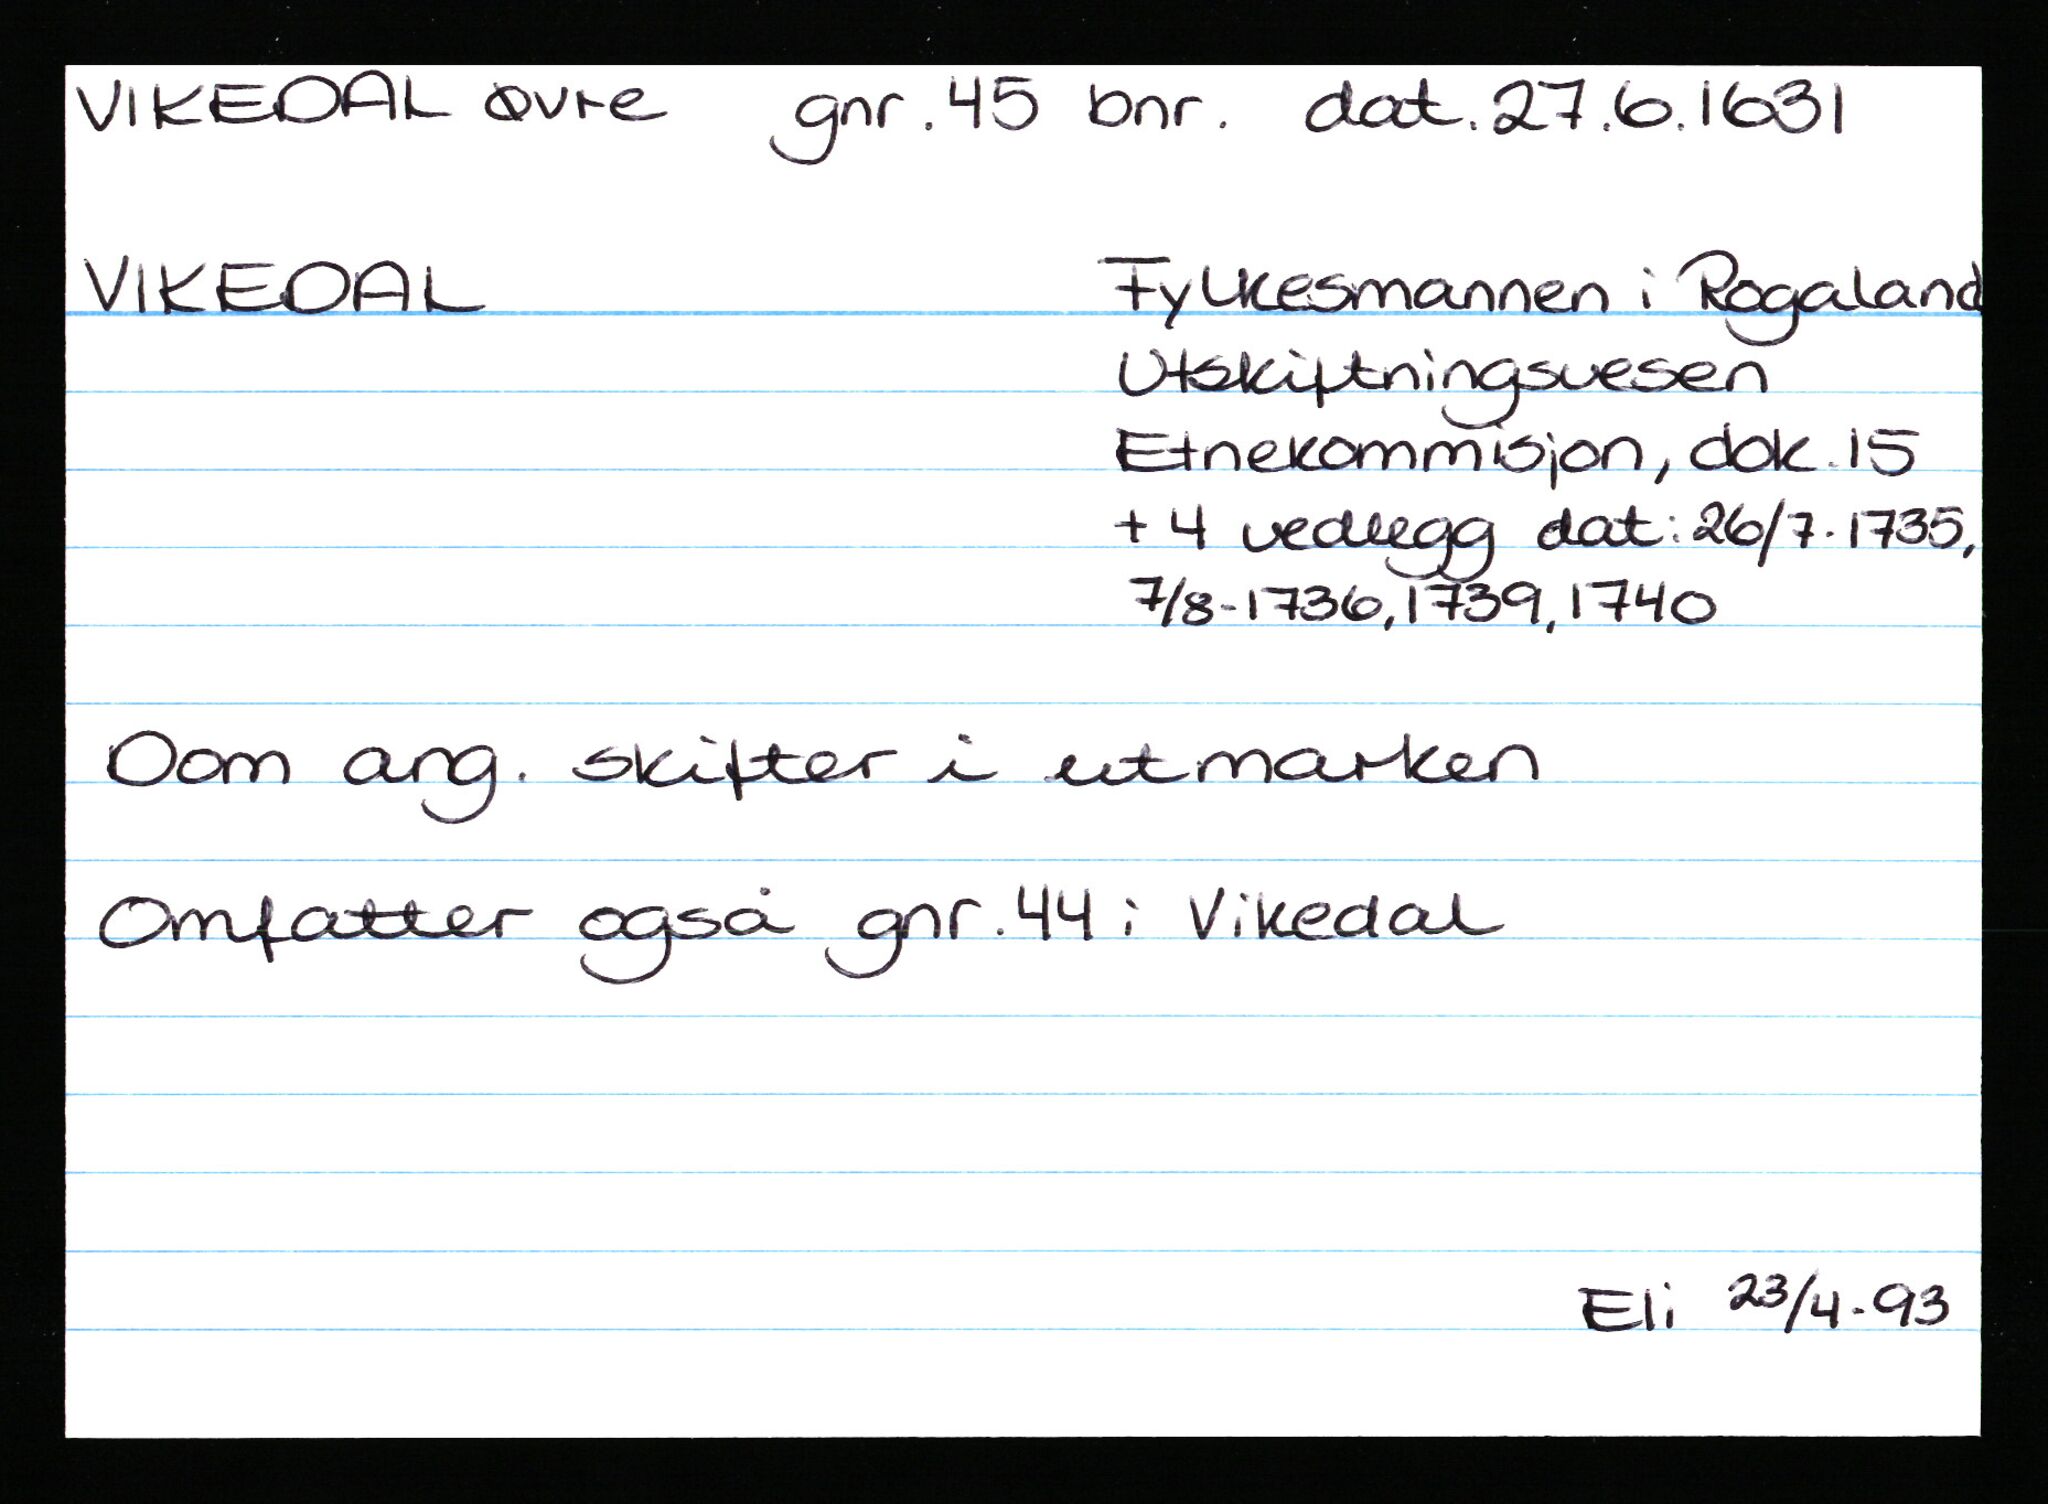 VIKEDAL øvre gnr. 45 bnr. dat. 27.6.1631
VIKEDAL Fylkesmannen i Rogaland
Utskiftningsvesen
Etnekommisjon, dok. 15
+ 4 vedlegg dat: 26/7-1735,
7/8-1736, 1739, 1740
Dom ang. skifter i utmarken
Omfatter også gnr. 44 i Vikedal
Eli 23/4-93